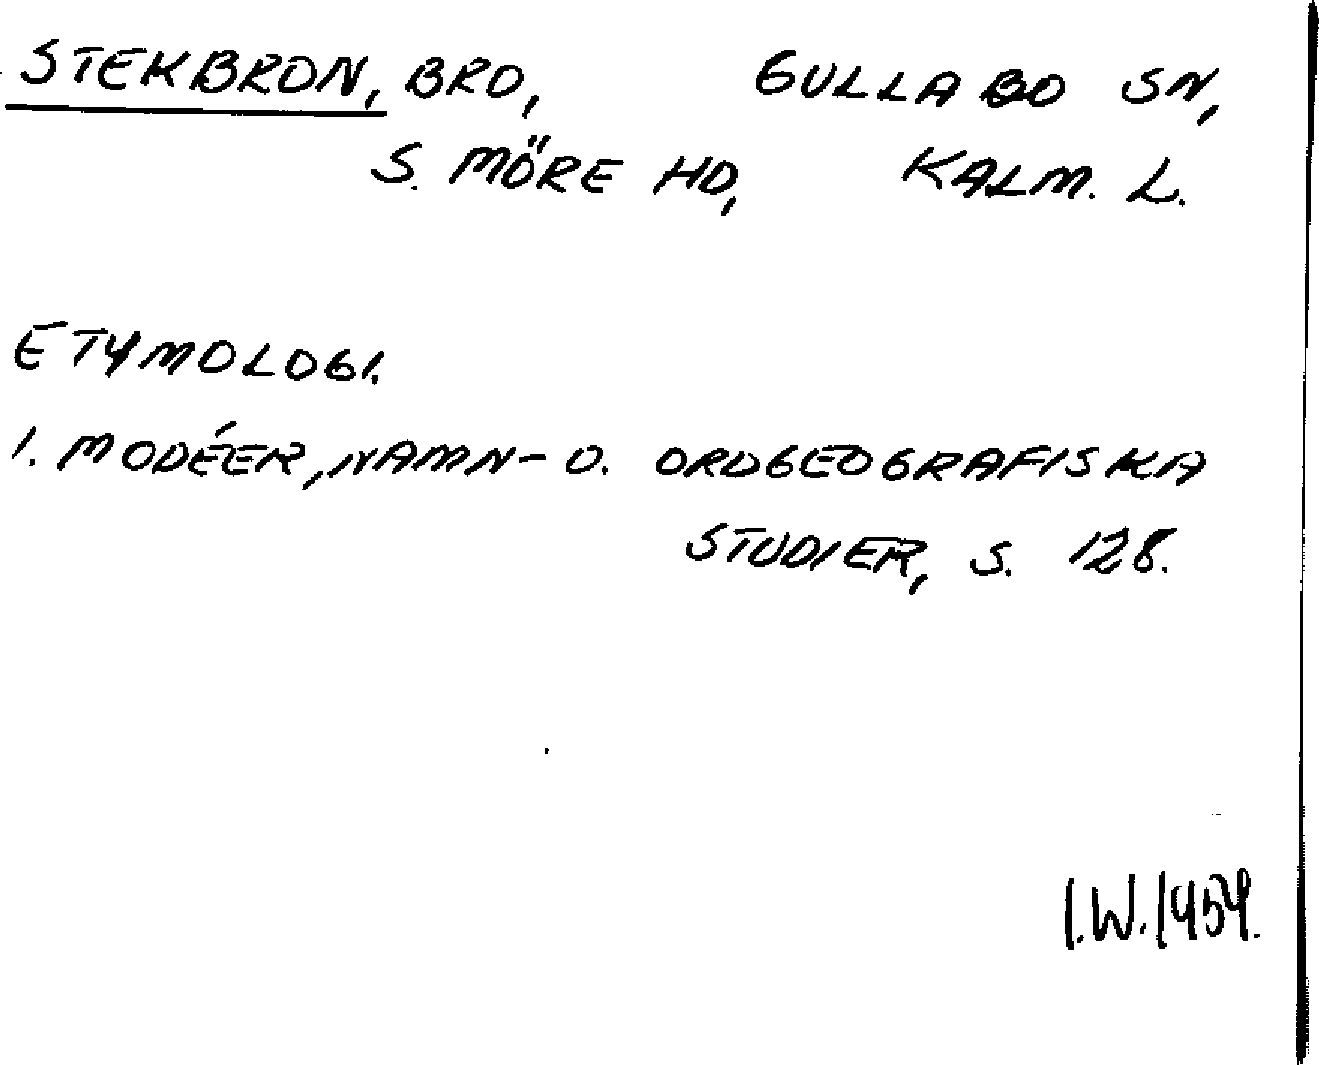 STEKBRON, BRO, GULLABO SN,
S. MÖRE HD, KALM. L.
ETYMOLOGI.
1. MODÉER, NAMN- O. ORDGEOGRAFISKA
STUDIER, S. 128.
I.W. 1959.